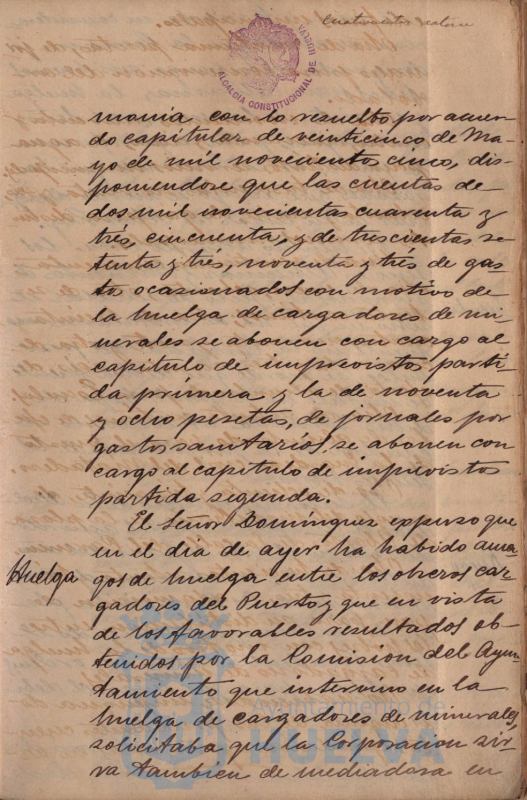 ALCALDÍA CONSTITUCIONAL DE HUELVA
monia con lo resuelto por acuer-
do capitular de veinticinco de Ma-
yo de mil novecientos cinco, dis-
poniendose que las cuentas de
dos mil novecientas cuarenta y
trés, cincuenta, y de trescientas se-
tenta y trés, noventa y trés de gas-
tos ocasionados con motivo de
la huelga de cargadores de mi-
nerales se abonen con cargo al
capitulo de imprevistos parti-
da primera y la de noventa
y ocho pesetas, de jornales por
gastos sanitarios, se abonen con
cargo al capitulo de imprevistos
partida segunda.
El Señor Domínguez expuso que
en el dia de ayer ha habido ama-
Huelga
gos de huelga entre los obreros car-
gadores del Puerto y que en vista
de los favorables resultados ob-
tenidos por la Comision del Ayun-
tamiento que intervino en la
huelga de cargadores de minerales,
solicitaba que la Corporacion sir-
va tambien de mediadora en
Ayuntamiento de
HUELVA